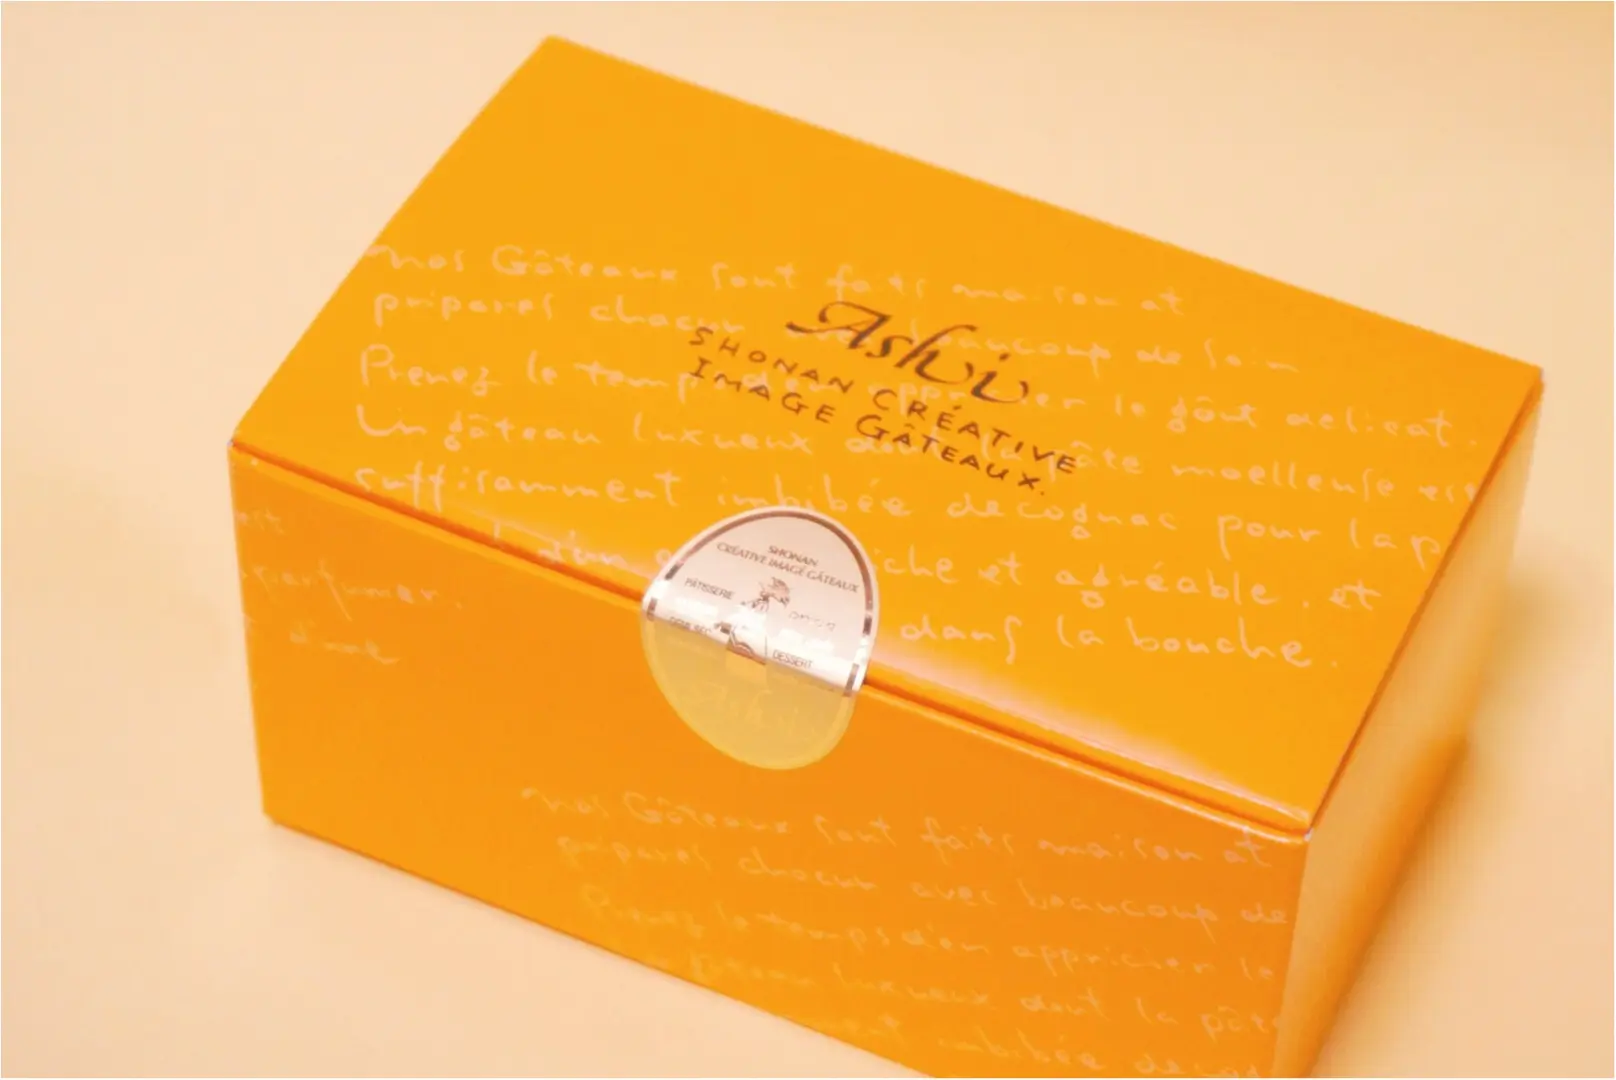 nos Gâteaux sont faits maison et
préparés chacun beaucoup de soin
Prenez le temps d'en apprécier le goût delicat.
Un gâteau luxueux dont la pâte moelleuse est
suffisamment imbibée de cognac pour la p
d'un che et agréable, et
dans la bouche.
Ashi
SHONAN CRÉATIVE
IMAGE GÂTEAUX.
SHONAN
CRÉATIVE IMAGE GÂTEAUX
PÂTISSERIE
DEMI SEC
DESSERT
est
parfumer.
d'une
nos Gâteaux sont faits maison et
préparés chacun avec beaucoup de
Prenez le temps d'en apprécier le
gâteau luxueux dont la pâte
imbibée de cog